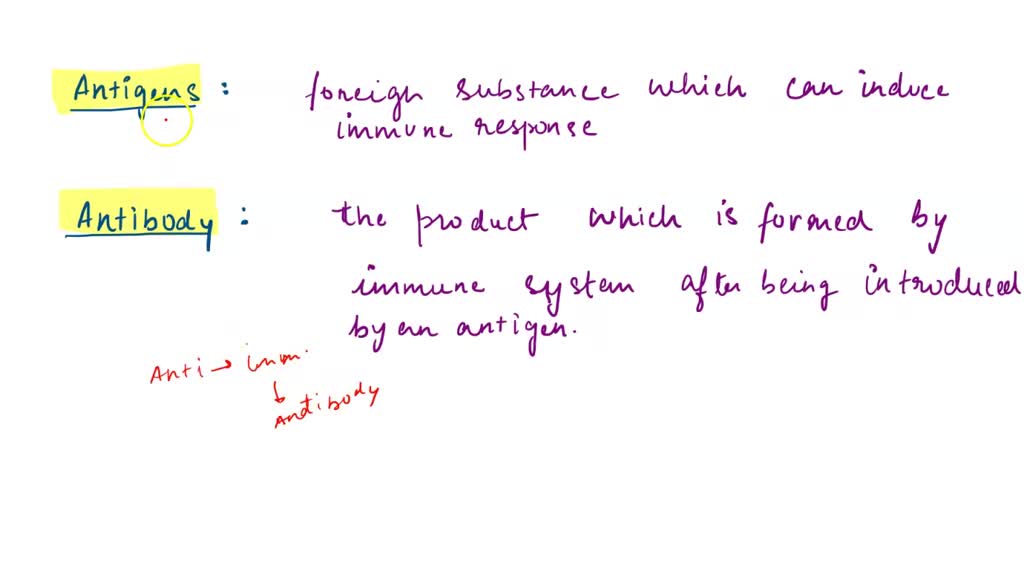 Antigens : foreign substance which can induce
immune response
Antibody : the product which is formed by
immune system after being introduced
by an antigen.
Anti → imm.
↓
Antibody